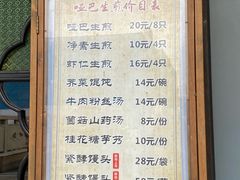 哑巴生煎价目表
哑巴生煎 20元/8只
净素生煎 10元/4只
虾仁生煎 16元/4只
荠菜馄饨 14元/碗
牛肉粉丝汤 14元/碗
菌菇山药汤 8元/份
桂花糖芋艿 10元/份
紧酵馒头 28元/袋
紧酵馒头